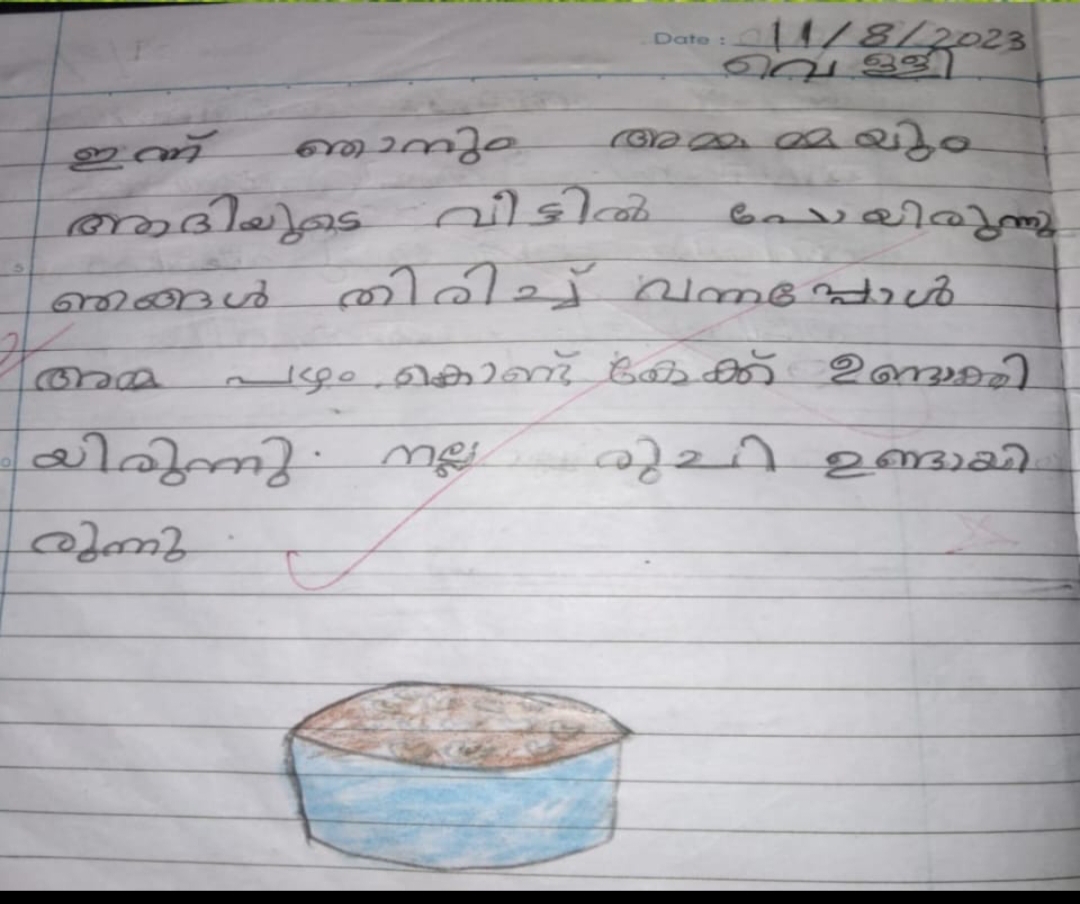 Date : 11/8/2023
വെള്ളി
ഇന്ന് ഞാനും അമ്മമ്മയും
ആദിയുടെ വീട്ടിൽ പോയിരുന്നു
ഞങ്ങൾ തിരിച്ച് വന്നപ്പോൾ
അമ്മ പഴം കൊണ്ട് കേക്ക് ഉണ്ടാക്കി
യിരുന്നു. നല്ല രുചി ഉണ്ടായി
രുന്നു.